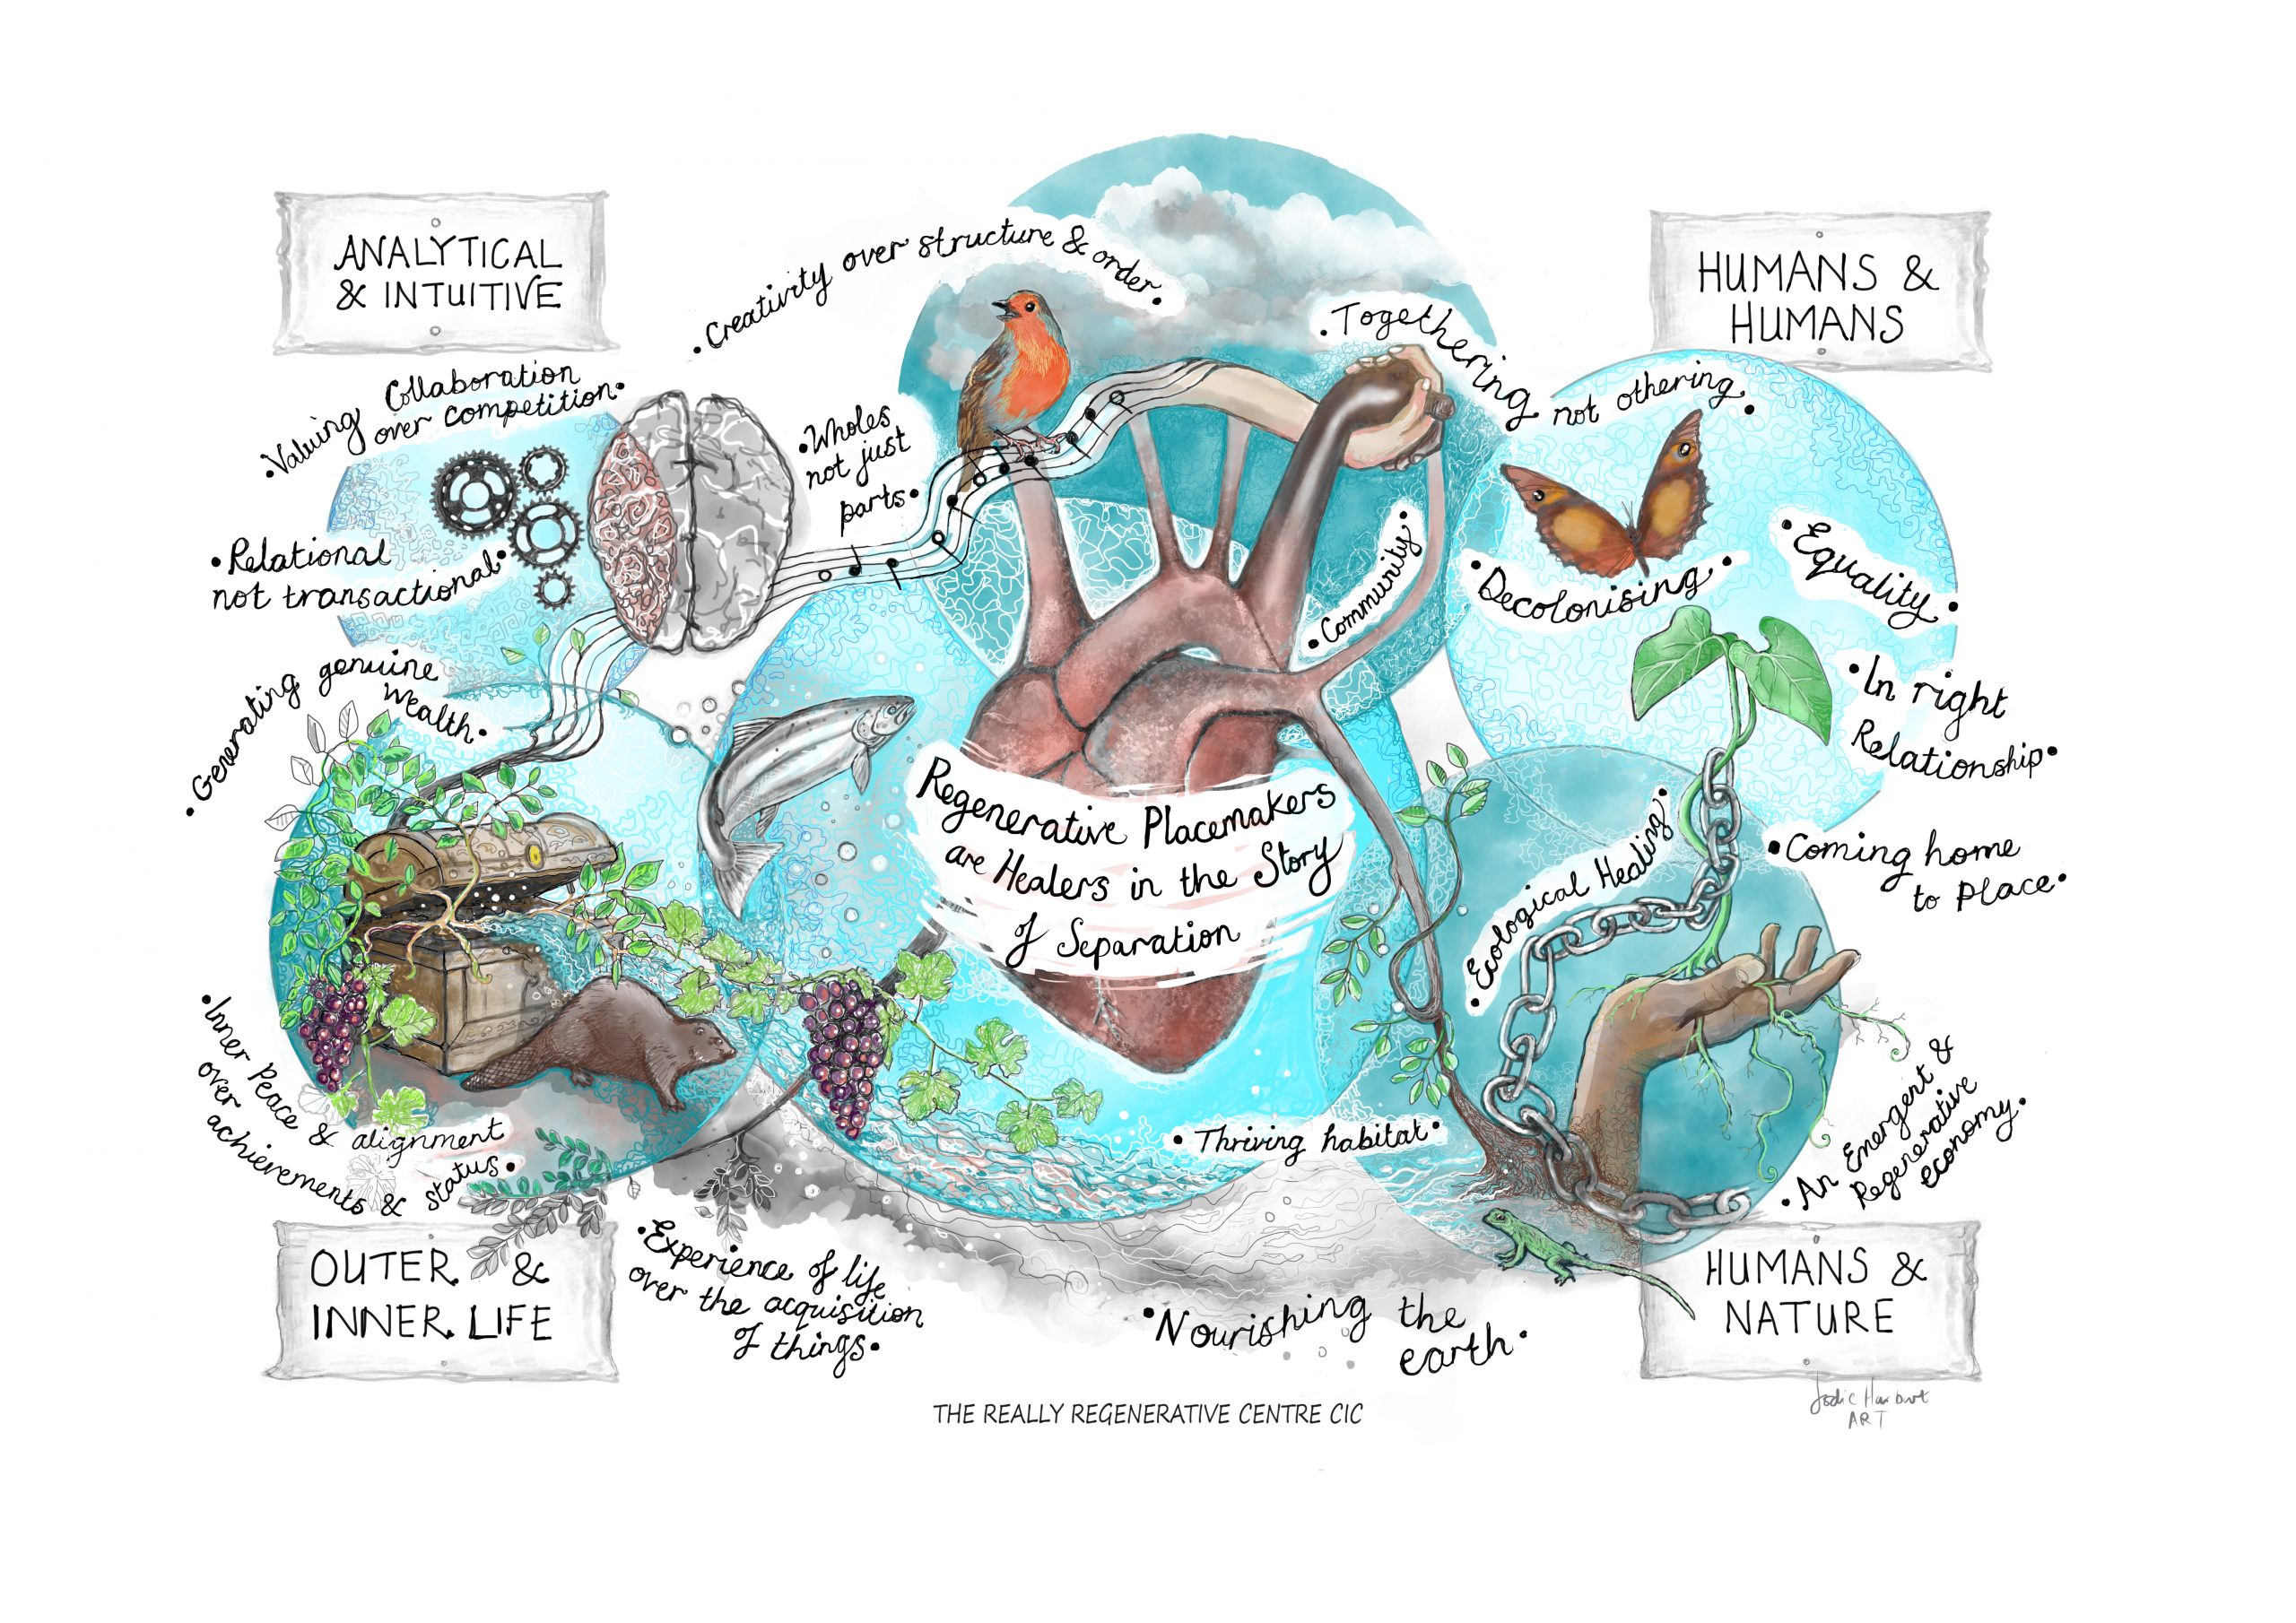 ANALYTICAL
& INTUITIVE
HUMANS &
HUMANS
• Creativity over structure & order •
• Togethering not othering •
• Valuing Collaboration
over competition •
• Wholes
not just
parts •
• Relational
not transactional •
• Community •
• Decolonising •
• Equality •
• In right
Relationship •
• Generating genuine
wealth •
Regenerative Placemakers
are Healers in the Story
of Separation
• Ecological Healing •
• Coming home
to place •
• Inner Peace & alignment
over achievements & status •
• Thriving habitat •
• An Emergent &
Regenerative
economy •
OUTER &
INNER LIFE
• Experience of life
over the acquisition
of things •
• Nourishing the
earth •
HUMANS &
NATURE
THE REALLY REGENERATIVE CENTRE CIC
ART